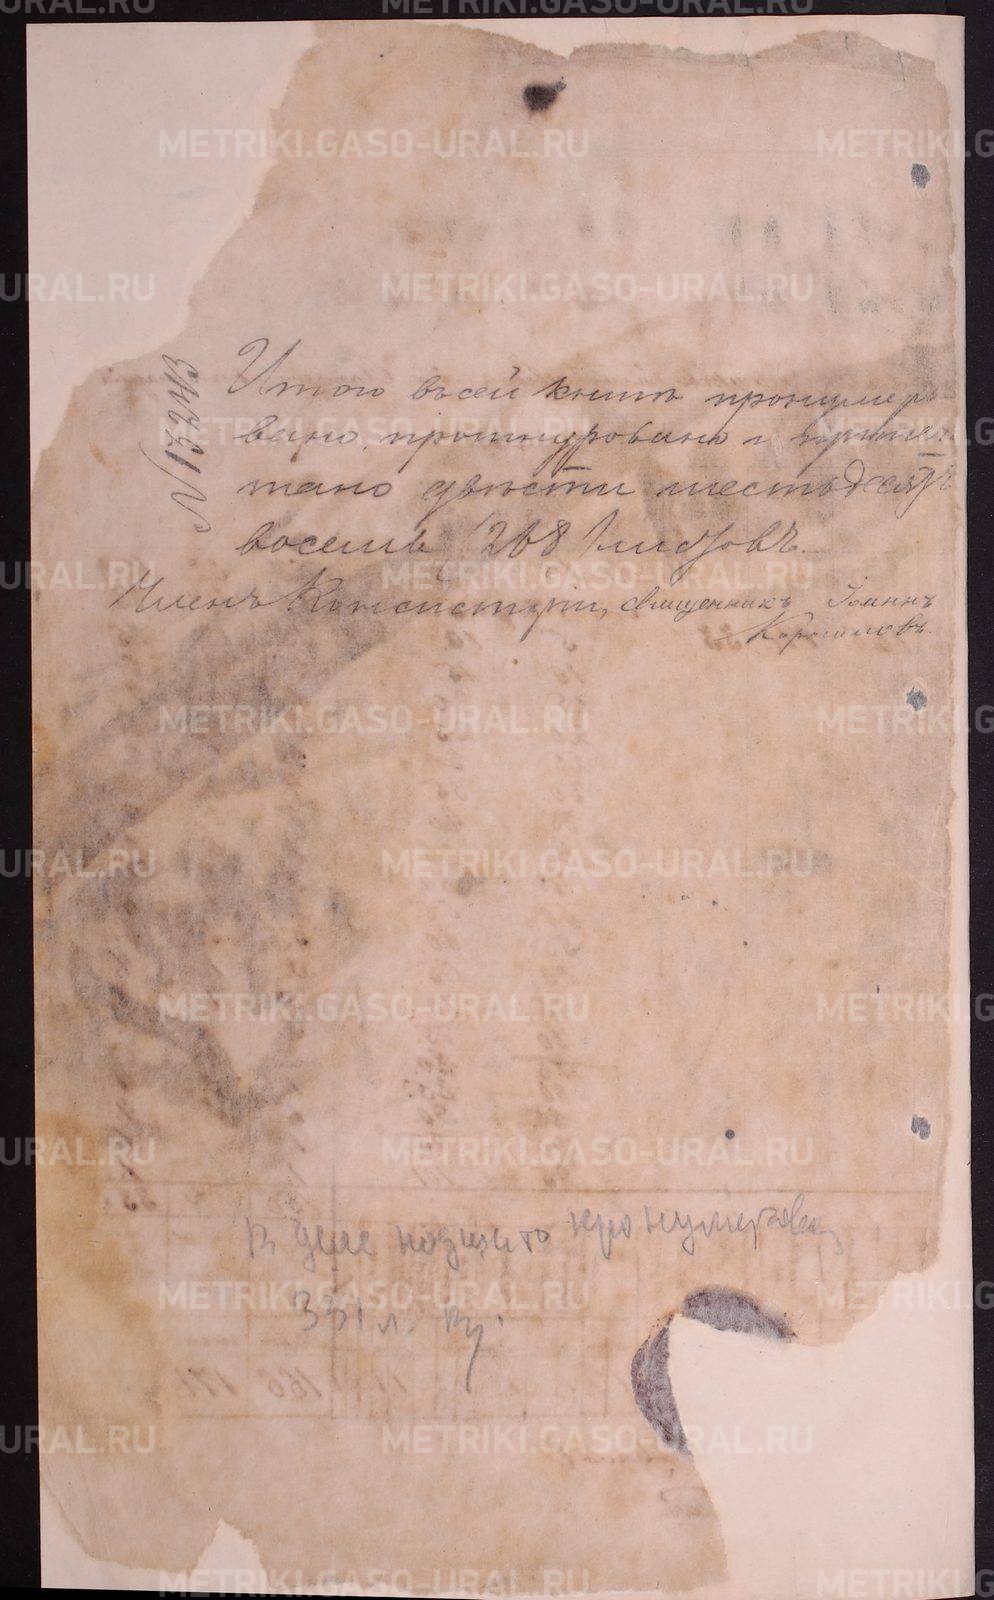 № 15243
Итого въ сей книгѣ пронумеро
вано, прошнуровано и припеча
тано двѣсти шестьдесятъ
восемь /268/ листовъ.
Членъ Консисторіи, священникъ Іоаннъ
В деле подшито пронумеровано
331 л.
METRIKI.GASO-URAL.RU